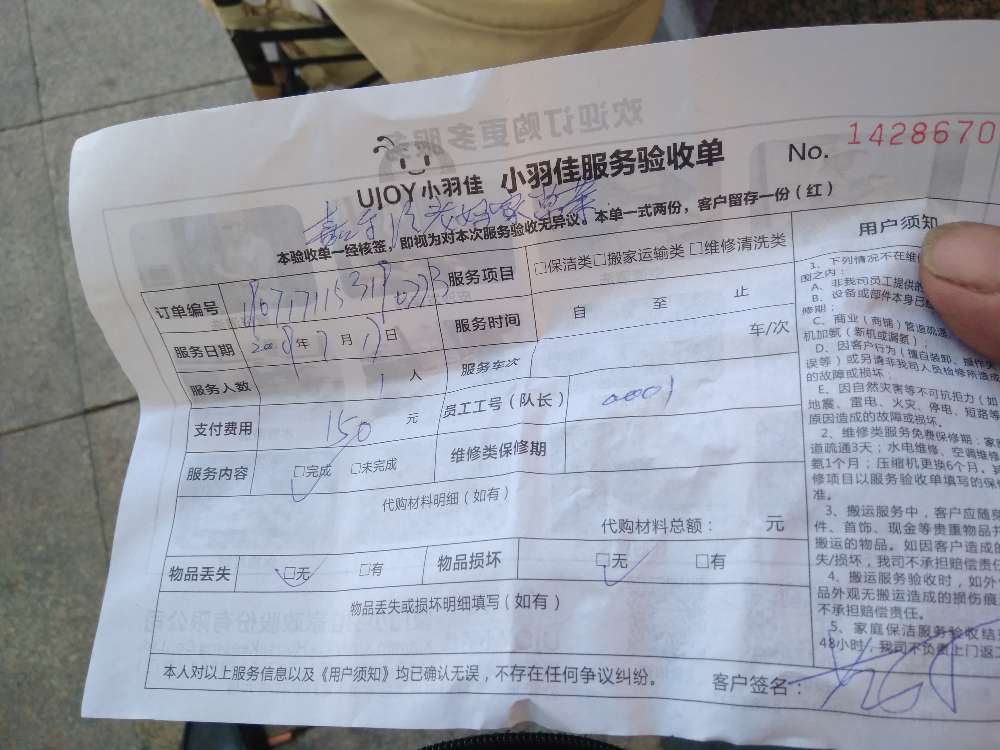 欢迎订购更多服务
UJOY 小羽佳 小羽佳服务验收单 No. 1428670
本验收单一经核签，即视为对本次服务验收无异议。本单一式两份，客户留存一份（红）
订单编号 服务项目 □保洁类□搬家运输类 □维修清洗类
服务日期 2018年7月17日 服务时间 自 至 止
服务人数 1 人 服务车次 车/次
支付费用 150 元 员工工号（队长） 0001
服务内容 □完成 □未完成 维修类保修期
代购材料明细（如有）
代购材料总额： 元
物品丢失 □无 □有 物品损坏 □无 □有
物品丢失或损坏明细填写（如有）
本人对以上服务信息以及《用户须知》均已确认无误，不存在任何争议纠纷。 客户签名：
用户须知
下列情况不在维
围之内：
A、非我司员工提供的
B、设备或部件本身已
修期；
C、商业（商铺）管道疏通
机加氨（新机或漏氨）；
D、因客户行为（擅自装卸、操作失
误等）或另请非我司人员检修所造成
的故障或损坏；
E、因自然灾害等不可抗拒力（如
地震、雷电、火灾、停电、短路等
原因造成的故障或损坏。
2、维修类服务免费保修期：家庭
道疏通3天；水电维修、空调维修
氨1个月；压缩机更换6个月。其
修项目以服务验收单填写的保
准。
3、搬运服务中，客户应随身
件、首饰、现金等贵重物品
搬运的物品。如因客户造成的
失/损坏，我司不承担赔偿责任
4、搬运服务验收时，如外
品外观无搬运造成的损伤痕
不承担赔偿责任。
5、家庭保洁服务验收结
48小时，我司不负责上门返工